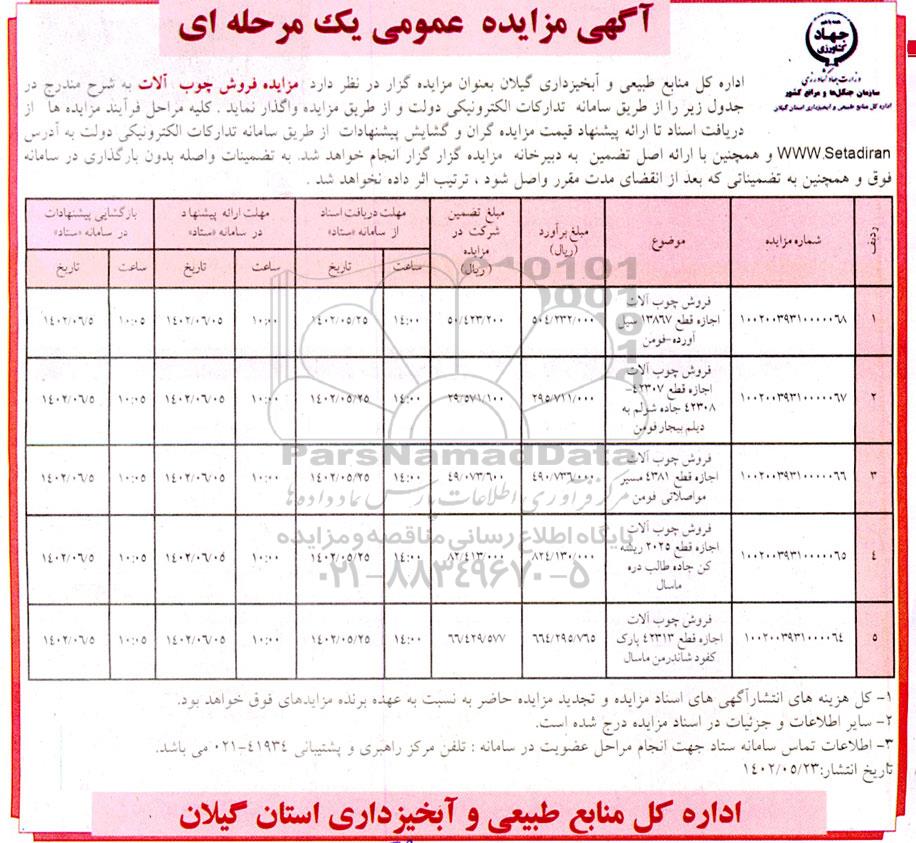 آگهی مزایده عمومی یک مرحله ای
جهاد
کشاورزی
سازمان جنگل‌ها و مراتع کشور
اداره کل منابع طبیعی و آبخیزداری استان گیلان
اداره کل منابع طبیعی و آبخیزداری گیلان بعنوان مزایده گزار در نظر دارد مزایده فروش چوب آلات به شرح مندرج در
جدول زیر را از طریق سامانه تدارکات الکترونیکی دولت و از طریق مزایده واگذار نماید . کلیه مراحل فرآیند مزایده ها از
دریافت اسناد تا ارائه پیشنهاد قیمت مزایده گران و گشایش پیشنهادات از طریق سامانه تدارکات الکترونیکی دولت به آدرس
WWW.Setadiran و همچنین با ارائه اصل تضمین به دبیرخانه مزایده گزار گزار انجام خواهد شد. به تضمینات واصله بدون بارگذاری در سامانه
فوق و همچنین به تضمیناتی که بعد از انقضای مدت مقرر واصل شود ، ترتیب اثر داده نخواهد شد .
ردیف | شماره مزایده | موضوع | مبلغ برآورد (ریال) | مبلغ تضمین شرکت در مزایده (ریال) | مهلت دریافت اسناد از سامانه «ستاد» | مهلت ارائه پیشنهاد در سامانه «ستاد» | بازگشایی پیشنهادات در سامانه «ستاد»
ساعت | تاریخ | ساعت | تاریخ | ساعت | تاریخ
۱ | ۱۰۰۲۰۰۳۹۳۱۰۰۰۰۰۶۸ | فروش چوب آلات اجازه قطع ۱۳۸۶۷ سیل آورده-فومن | ۵۰۴/۲۳۲/۰۰۰ | ۵۰/۴۲۳/۲۰۰ | ۱۴:۰۰ | ۱۴۰۲/۰۵/۲۵ | ۱۰:۰۰ | ۱۴۰۲/۰۶/۰۵ | ۱۰:۰۵ | ۱۴۰۲/۰۶/۵
۲ | ۱۰۰۲۰۰۳۹۳۱۰۰۰۰۰۶۷ | فروش چوب آلات اجازه قطع ۴۲۳۰۷-۴۲۳۰۸ جاده شولم به دیلم بیجار فومن | ۲۹۵/۷۱۱/۰۰۰ | ۲۹/۵۷۱/۱۰۰ | ۱۴:۰۰ | ۱۴۰۲/۰۵/۲۵ | ۱۰:۰۰ | ۱۴۰۲/۰۶/۰۵ | ۱۰:۰۵ | ۱۴۰۲/۰۶/۵
۳ | ۱۰۰۲۰۰۳۹۳۱۰۰۰۰۰۶۶ | فروش چوب آلات اجازه قطع ۴۳۸۱ مسیر مواصلاتی فومن | ۴۹۰/۷۳۶/۰۰۰ | ۴۹/۰۷۳/۶۰۰ | ۱۴:۰۰ | ۱۴۰۲/۰۵/۲۵ | ۱۰:۰۰ | ۱۴۰۲/۰۶/۰۵ | ۱۰:۰۵ | ۱۴۰۲/۰۶/۵
۴ | ۱۰۰۲۰۰۳۹۳۱۰۰۰۰۰۶۵ | فروش چوب آلات اجازه قطع ۲۰۲۵ ریشه کن جاده طالب دره ماسال | ۸۲۴/۱۳۰/۰۰۰ | ۸۲/۴۱۳/۰۰۰ | ۱۴:۰۰ | ۱۴۰۲/۰۵/۲۵ | ۱۰:۰۰ | ۱۴۰۲/۰۶/۰۵ | ۱۰:۰۵ | ۱۴۰۲/۰۶/۵
۵ | ۱۰۰۲۰۰۳۹۳۱۰۰۰۰۶۴ | فروش چوب آلات اجازه قطع ۴۲۳۱۳ پارک کفود شاندرمن ماسال | ۶۶۴/۲۹۵/۷۶۵ | ۶۶/۴۲۹/۵۷۷ | ۱۴:۰۰ | ۱۴۰۲/۰۵/۲۵ | ۱۰:۰۰ | ۱۴۰۲/۰۶/۰۵ | ۱۰:۰۵ | ۱۴۰۲/۰۶/۵
ParsNamadData
مرکز فرآوری اطلاعات پارس نماد داده‌ها
پایگاه اطلاع رسانی مناقصه و مزایده
۰۲۱-۸۸۳۴۹۶۷۰-۵
۱- کل هزینه های انتشارآگهی های اسناد مزایده و تجدید مزایده حاضر به نسبت به عهده برنده مزایدهای فوق خواهد بود.
۲- سایر اطلاعات و جزئیات در اسناد مزایده درج شده است.
۳- اطلاعات تماس سامانه ستاد جهت انجام مراحل عضویت در سامانه : تلفن مرکز راهبری و پشتیبانی ۴۱۹۳۴-۰۲۱ می باشد.
تاریخ انتشار:۱۴۰۲/۰۵/۲۳
اداره کل منابع طبیعی و آبخیزداری استان گیلان